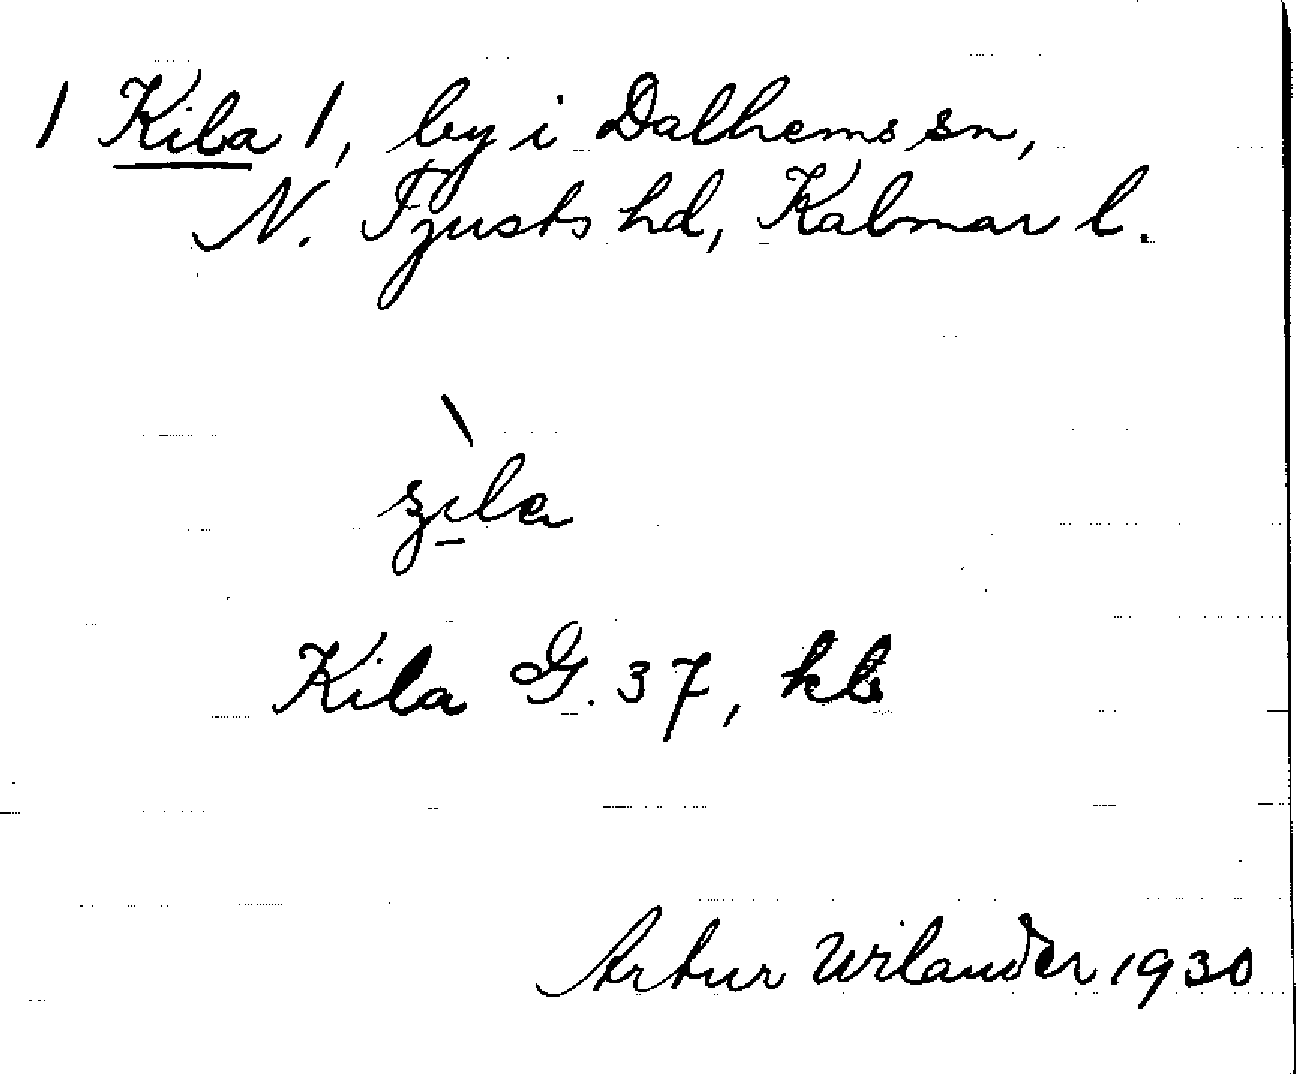 / Kila /, by i Dalhems sn,
N. Tjusts hd, Kalmar l.
Kila G. 37, kb
Artur Wilander 1930